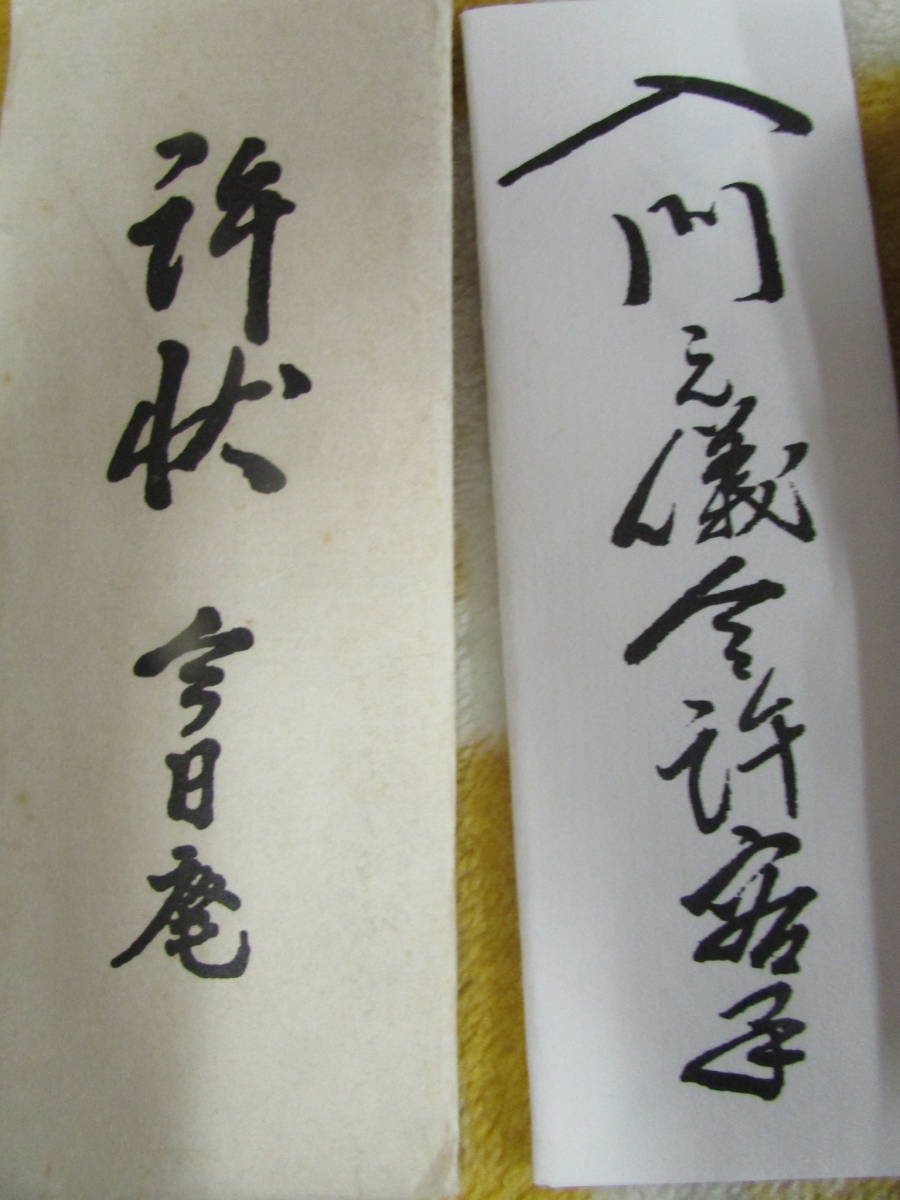 入門之儀令許容畢
許状 今日庵